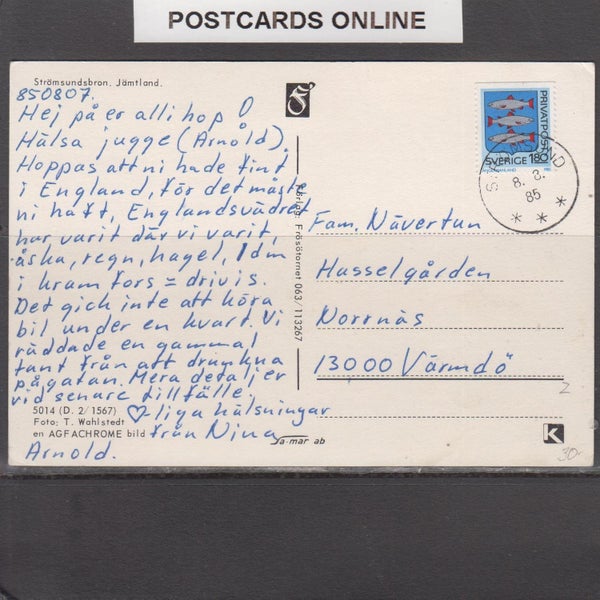 POSTCARDS ONLINE
Strömsundsbron, Jämtland.
850807.
Hej på er alli hop!
Hälsa jugge (Arnold).
Hoppas att ni hade fint
i England, för det måste
ni haft, Englandsvädret
har varit där vi varit,
åska, regn, hagel, 1 dm
i kram fors = drivis.
Det gich inte att köra
bil under en kvart. Vi
räddade en gammal
tant från att drunkna
på gatan. Mera detaljer
vid senare tillfälle.
liga hälsningar
från Nina
Arnold.
5014 (D. 2/1567)
Foto: T. Wahlstedt
en AGFACHROME bild
Sa-mar ab
Förlag: Frösötornet 063/113267
PRIVATPOST
SVERIGE 180
8. 8.
85
Fam. Nävertun
Hasselgården
Norrnäs
13000 Värmdö
Z
K
30:-